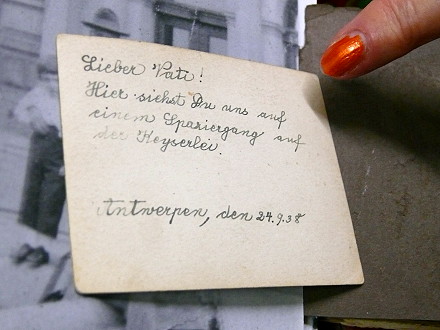 Lieber Vati!
Hier siehst Du uns auf
einem Spaziergang auf
der Keyserlei.
Antwerpen, den 24.9.38